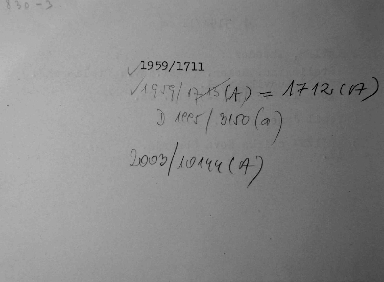 830-3
✓1959/1711
✓1959/1713(A) = 1712(A)
D 1995/3150(a)
2003/10144(A)